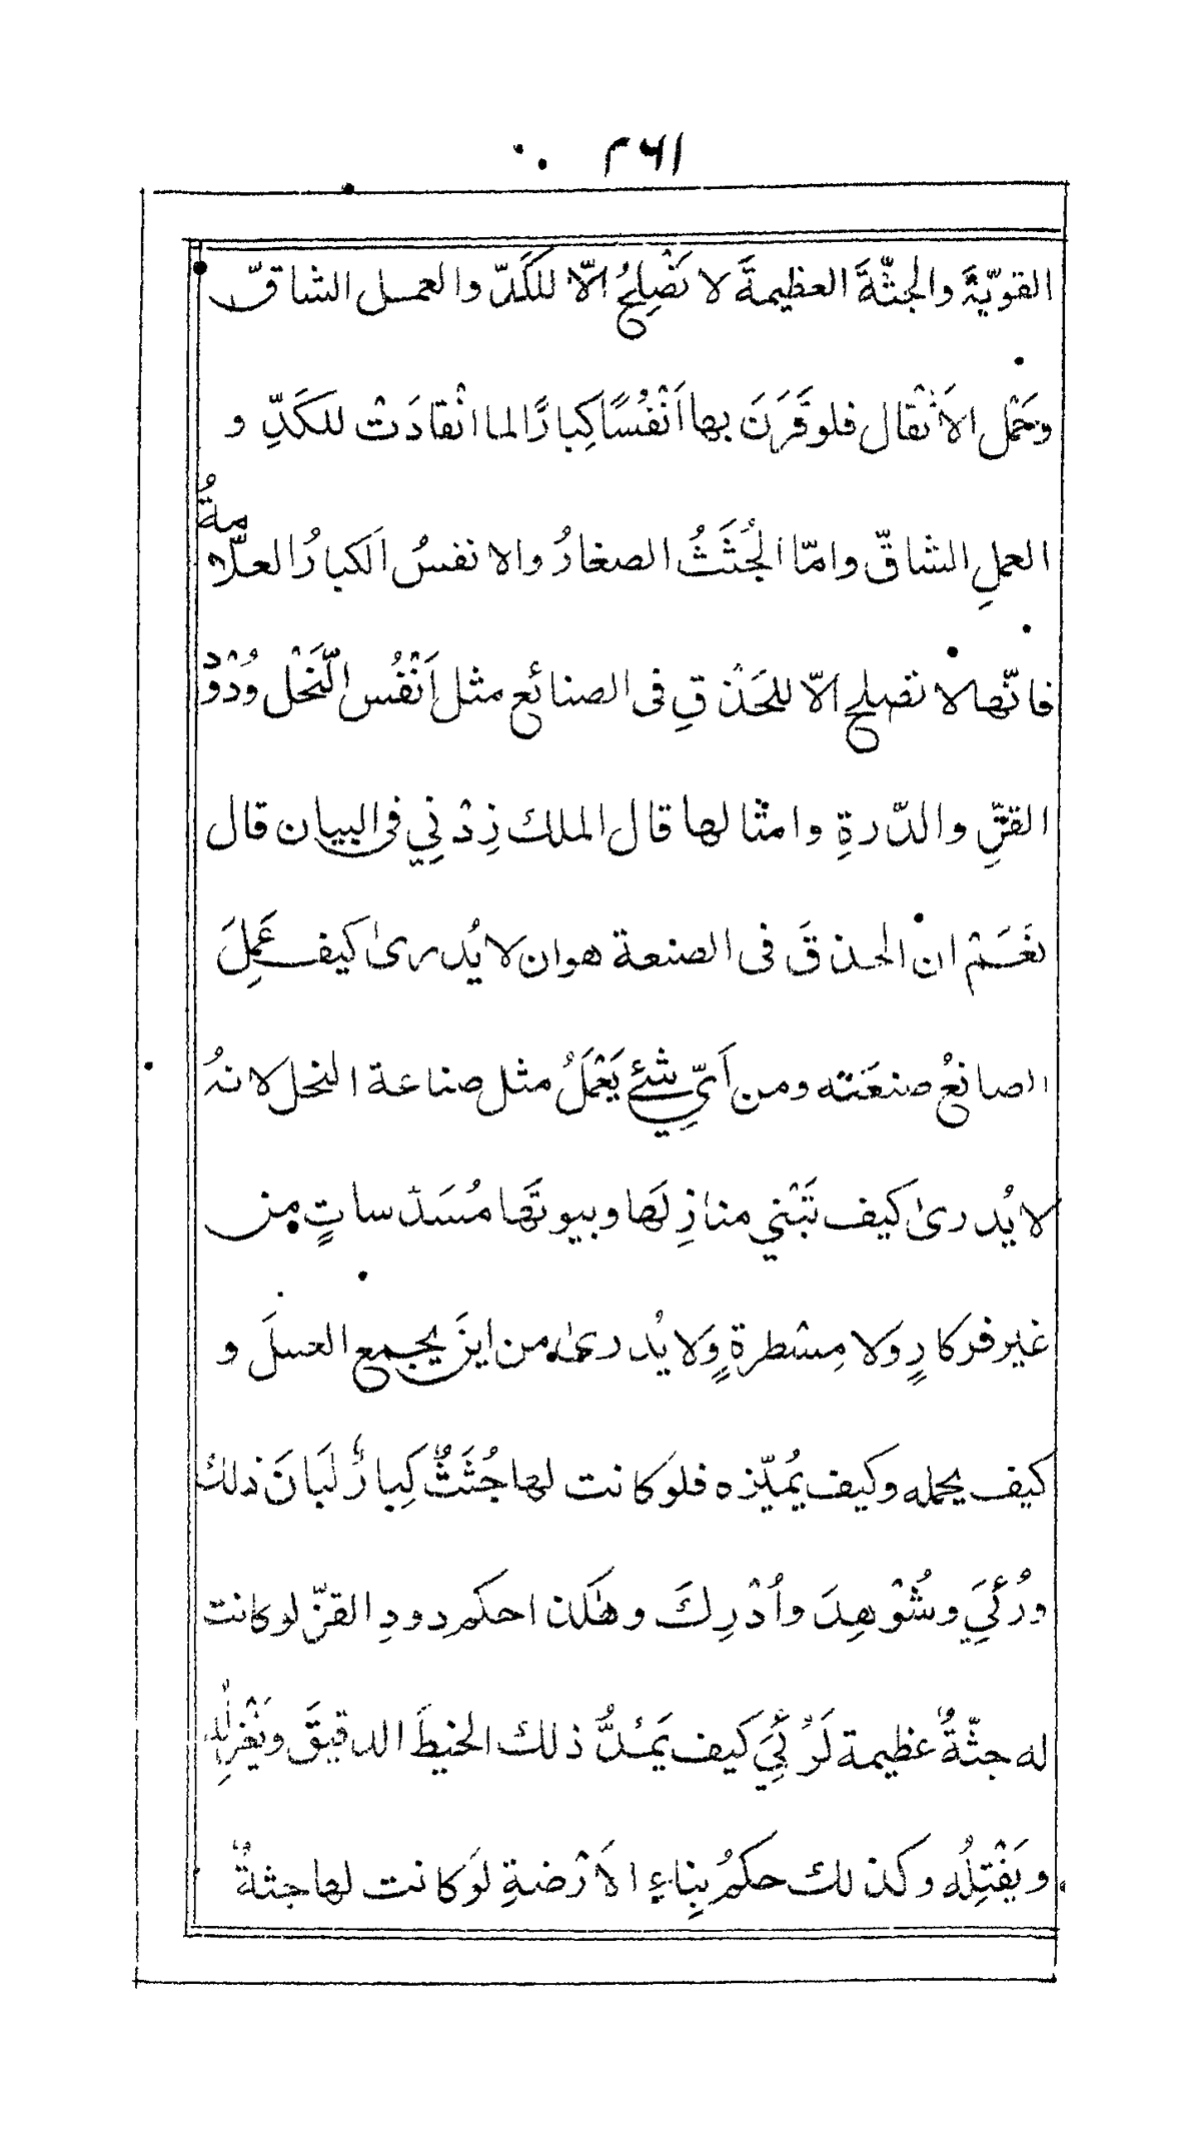 ٢٦١
القويّةَ والجثّةَ العظيمةَ لا تَصْلِحُ الّا للكَدّ والعمل الشاقّ
وحَمْل الاَثْقال فلو قَرَنَ بها اَنْفُسًا كِبارًا لما انْقادَتْ للكَدِّ و
العملِ الشاقّ وامّا الجُثَثُ الصغارُ والانفسُ الكبارُ العلّامةُ
فانّها لا تصلح الّا للحَذْقِ فى الصنائع مثل اَنْفُس النَّحْل ودُوْدِ
القزِّ والدّرةِ وامثالها قال الملك زِدْنِي فى البيان قال
نَعَمْ ان الحذقَ فى الصنعة هو ان لا يُدرىٰ كيف عَمِلَ
الصانعُ صنعَته ومن اَىِّ شئٍ يَعْمَلُ مثل صناعة النحل لانهُ
لا يُدرىٰ كيف تَبْني منازِلَها وبيوتَها مُسَدّساتٍ من
غير فركارٍ ولا مِسْطرةٍ وَلا يُدرىٰ من اينَ يجمع العسلَ و
كيف يحمله وكيف يُميّزه فلو كانت لها جُثَثٌ كِبارٌ لَبَانَ ذلك
ورُئِيَ وشُوْهِدَ واُدْرِكَ وهٰكذا حكم دودِ القزّ لو كانت
له جثّةٌ عظيمة لَرُئِيَ كيف يَمُدُّ ذلك الخيطَ الدقيقَ ويَغْزِلُه
ويَفْتِلُه وكذلك حكمُ بِناءِ الاَرْضةِ لَو كانت لها جثةٌ